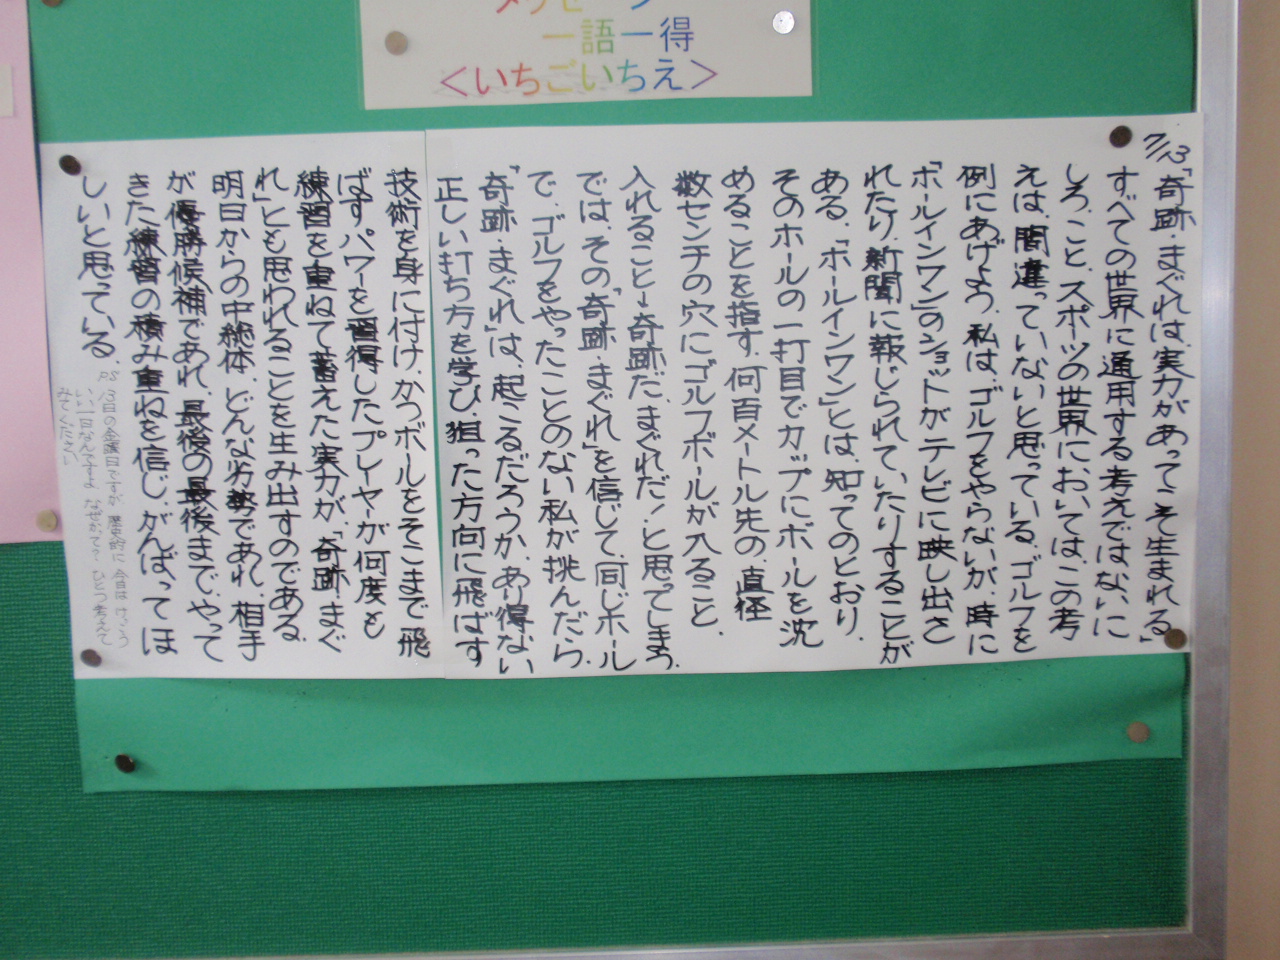 メッセージ
一語一得
＜いちごいちえ＞
7/13「奇跡・まぐれは、実力があってこそ生まれる」
すべての世界に通用する考えではないに
しろ、こと、スポーツの世界においては、この考
えは、間違っていないと思っている。ゴルフを
例にあげよう。私は、ゴルフをやらないが、時に
「ホールインワン」のショットがテレビに映し出さ
れたり、新聞に報じられていたりすることが
ある。「ホールインワン」とは、知ってのとおり、
そのホールの一打目でカップにボールを沈
めることを指す。何百メートル先の、直径
数センチの穴にゴルフボールが入ること、
入れること→奇跡だ、まぐれだ！と思ってしまう。
では、その「奇跡・まぐれ」を信じて、同じホール
で、ゴルフをやったことのない私が挑んだら、
「奇跡・まぐれ」は、起こるだろうか、あり得ない
正しい打ち方を学び、狙った方向に飛ばす
技術を身に付け、かつボールをそこまで飛
ばすパワーを習得したプレイヤーが何度も
練習を重ねて蓄えた実力が、「奇跡・まぐ
れ」とも思われることを生み出すのである
明日からの中総体、どんな劣勢であれ、相手
が優勝候補であれ、最後の最後まで、やって
きた練習の積み重ねを信じ、がんばってほ
しいと思っている。
P.S
13日の金曜日ですが、歴史的に今日は、けっこう
いい一日なんですよ なぜかって？、ひとつ考えて
みてください